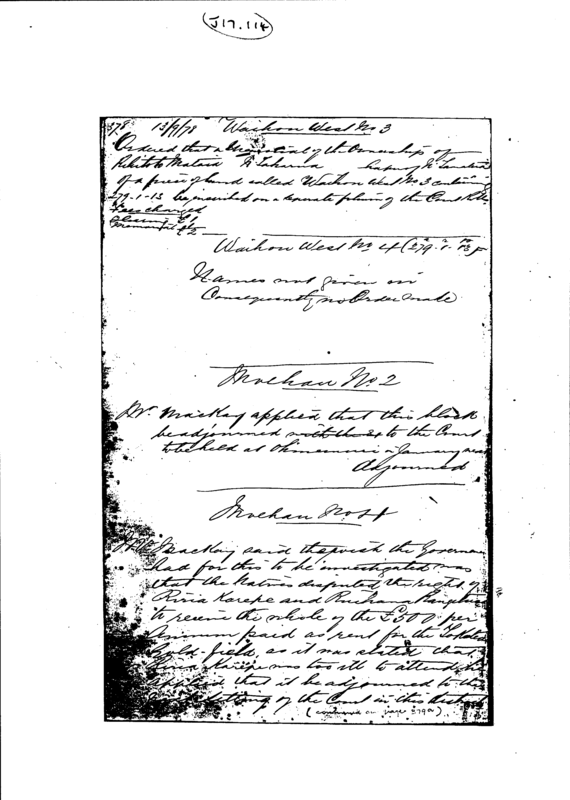 J17.114
378 13/9/78 Waihou West No 3
Ordered that a Memorial of the Ownership of
of a piece of land called Waihou West No 3 containing
279-1-13 be inscribed on a separate folium of the Court Rolls
Fees charged
£1
Memorial £2
Waihou West No 4 (279. 1. 13
Names not given in
Consequently no Order made
Moehau No 2
Mr. Mackay applied that this block
be adjourned to the Court
to be held at Ohinemuri in January next
Adjourned
Moehau No 4
Mr Mackay said the wish the Governm
had for this to be investigated was
that the Natives disputed the right of
Riria Karepe and
to receive the whole of the £500 per
Annum paid as rent for the Tokatea
Gold-field, as it was stated that
Riria Karepe was too ill to attend he
applied that it be adjourned to the
sitting of the Court in this district
(continued on page 379a)